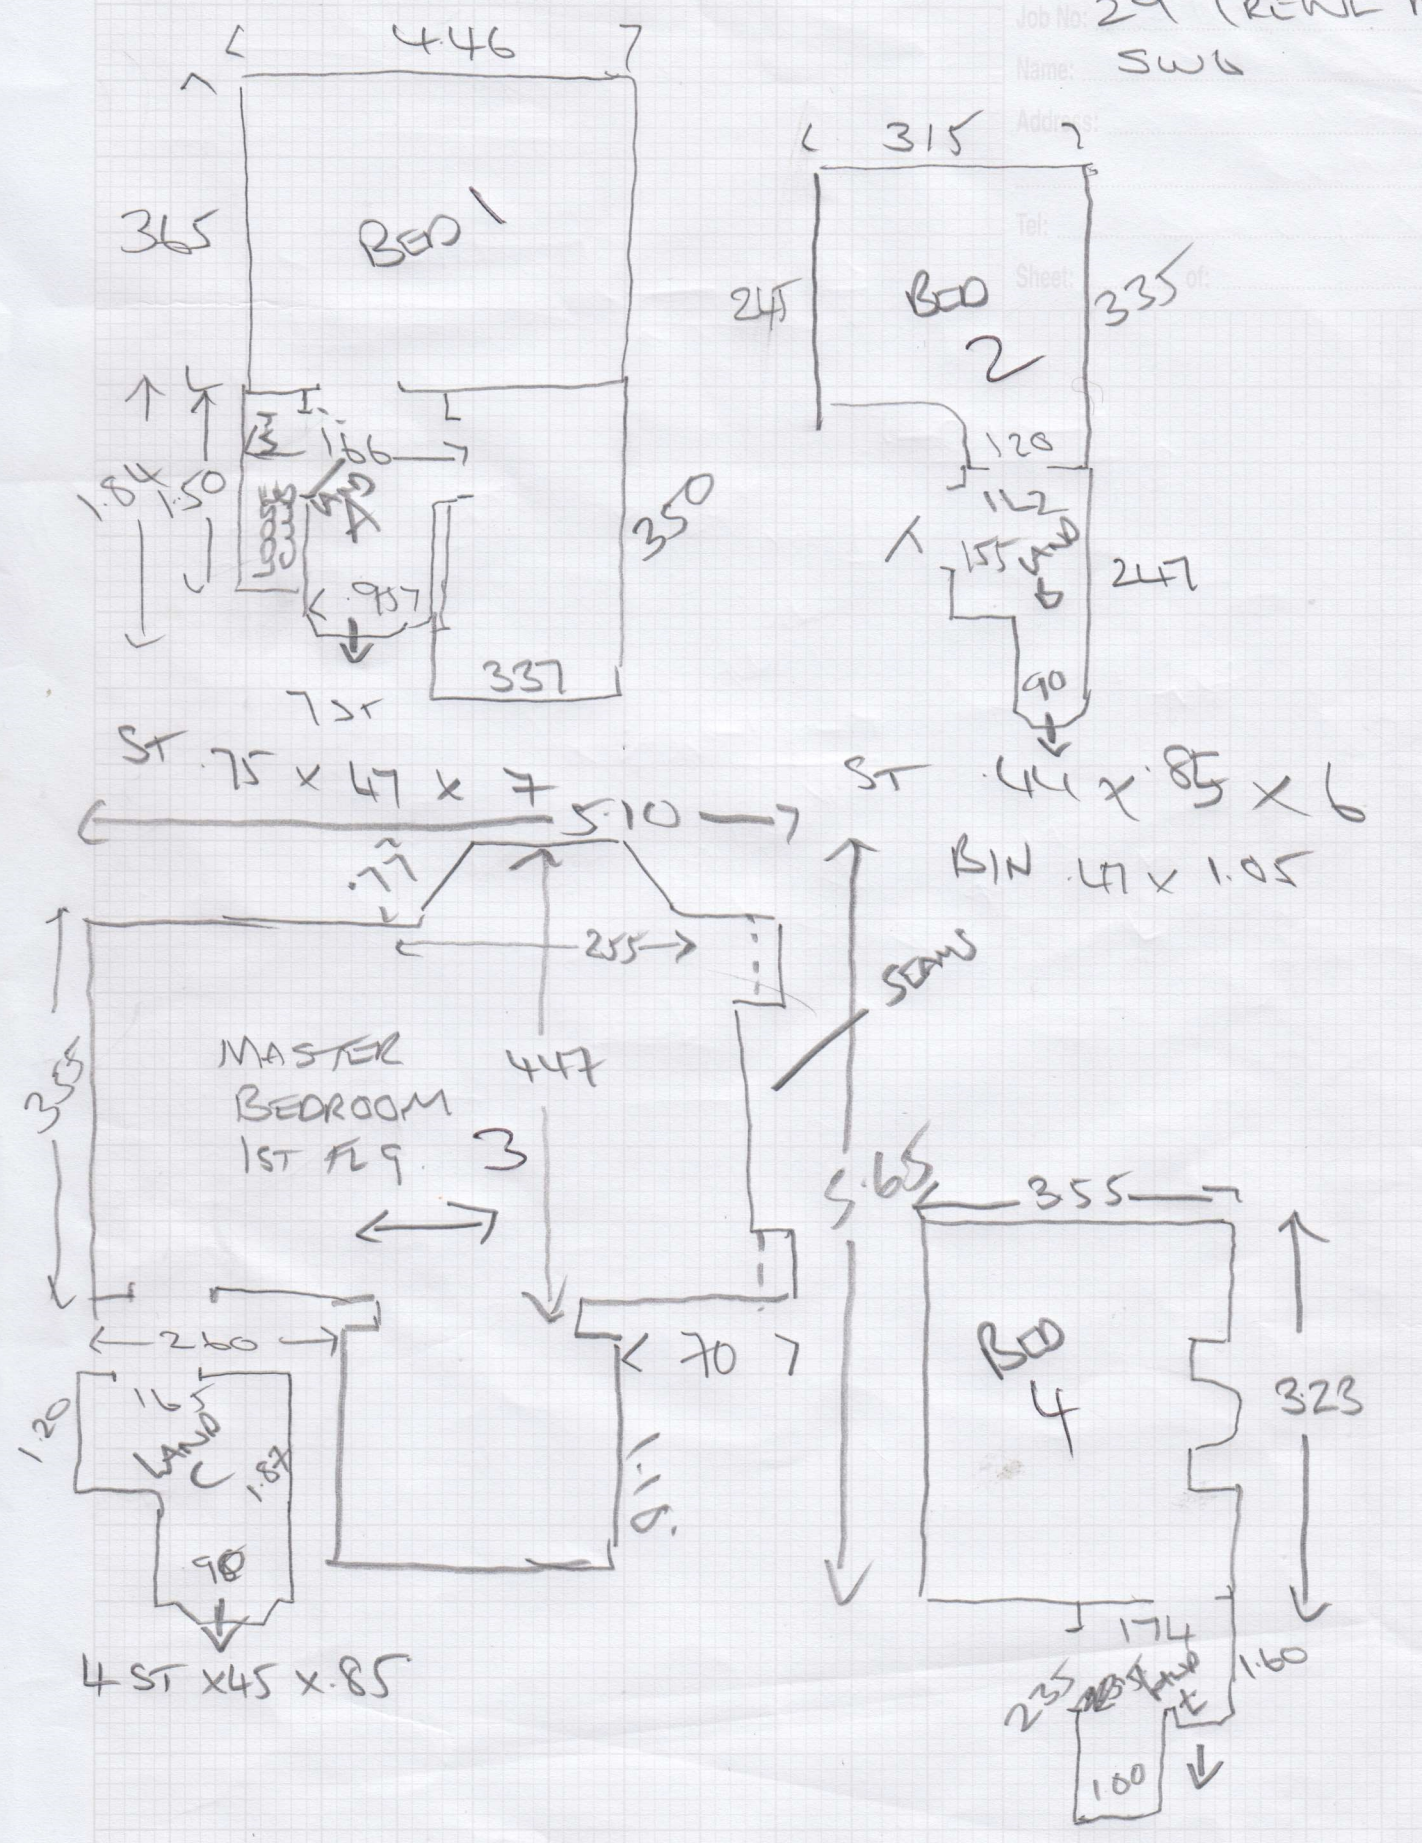 Job No: 29
Name: SW6
Address:
Tel:
Sheet: of:
4.46
365
BED 1
1.66
1.84
1.50
LOOSE
LAND
A
.957
350
337
7 ST
ST .75 x 47 x 7
315
245
BED
2
335
120
112
155
LAND
B
247
90
ST .44 x .85 x 6
BIN .47 x 1.05
5.10
.77
255
SEAMS
355
MASTER
BEDROOM
1ST FLR
3
447
5.65
260
70
1.19
1.20
165
LAND
C
1.87
90
4 ST x45 x.85
3.55
BED
4
3.23
174
235
1.60
100